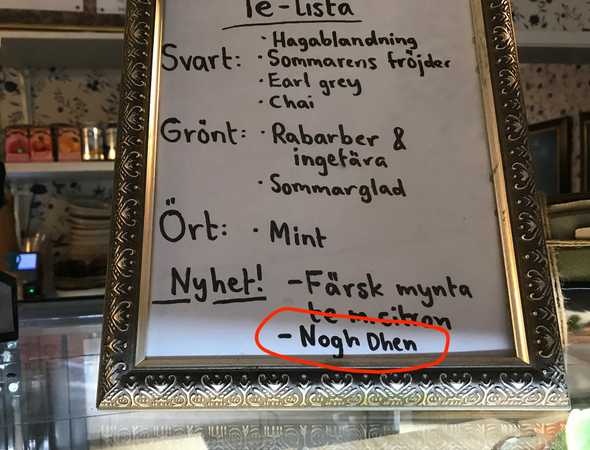 Te-lista
Svart: · Hagablandning
· Sommarens fröjder
· Earl grey
· Chai
Grönt: · Rabarber &
ingefära
· Sommarglad
Ört: · Mint
Nyhet! - Färsk mynta
te m.citron
- Nogh Dhen